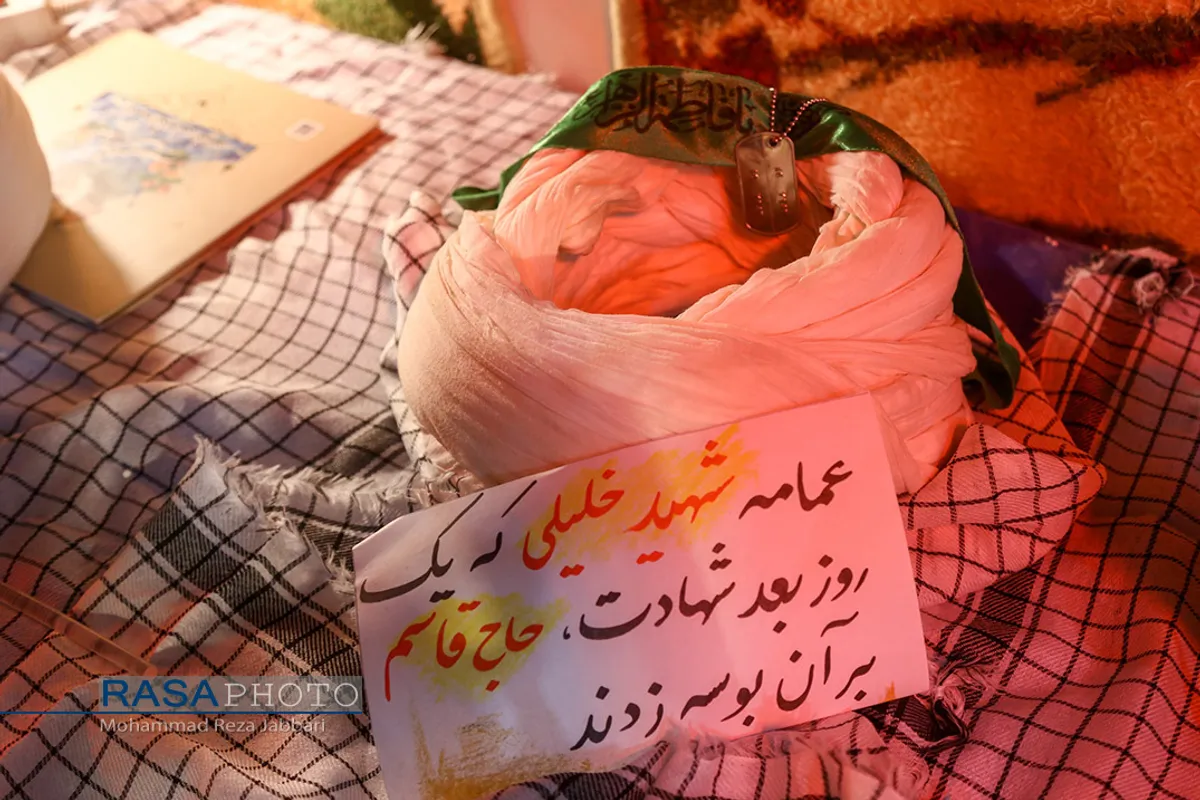 یا فاطمة الزهرا
عمامه شهید خلیلی که یک
روز بعد شهادت، حاج قاسم
بر آن بوسه زدند
RASAPHOTO
Mohammad Reza Jabbari